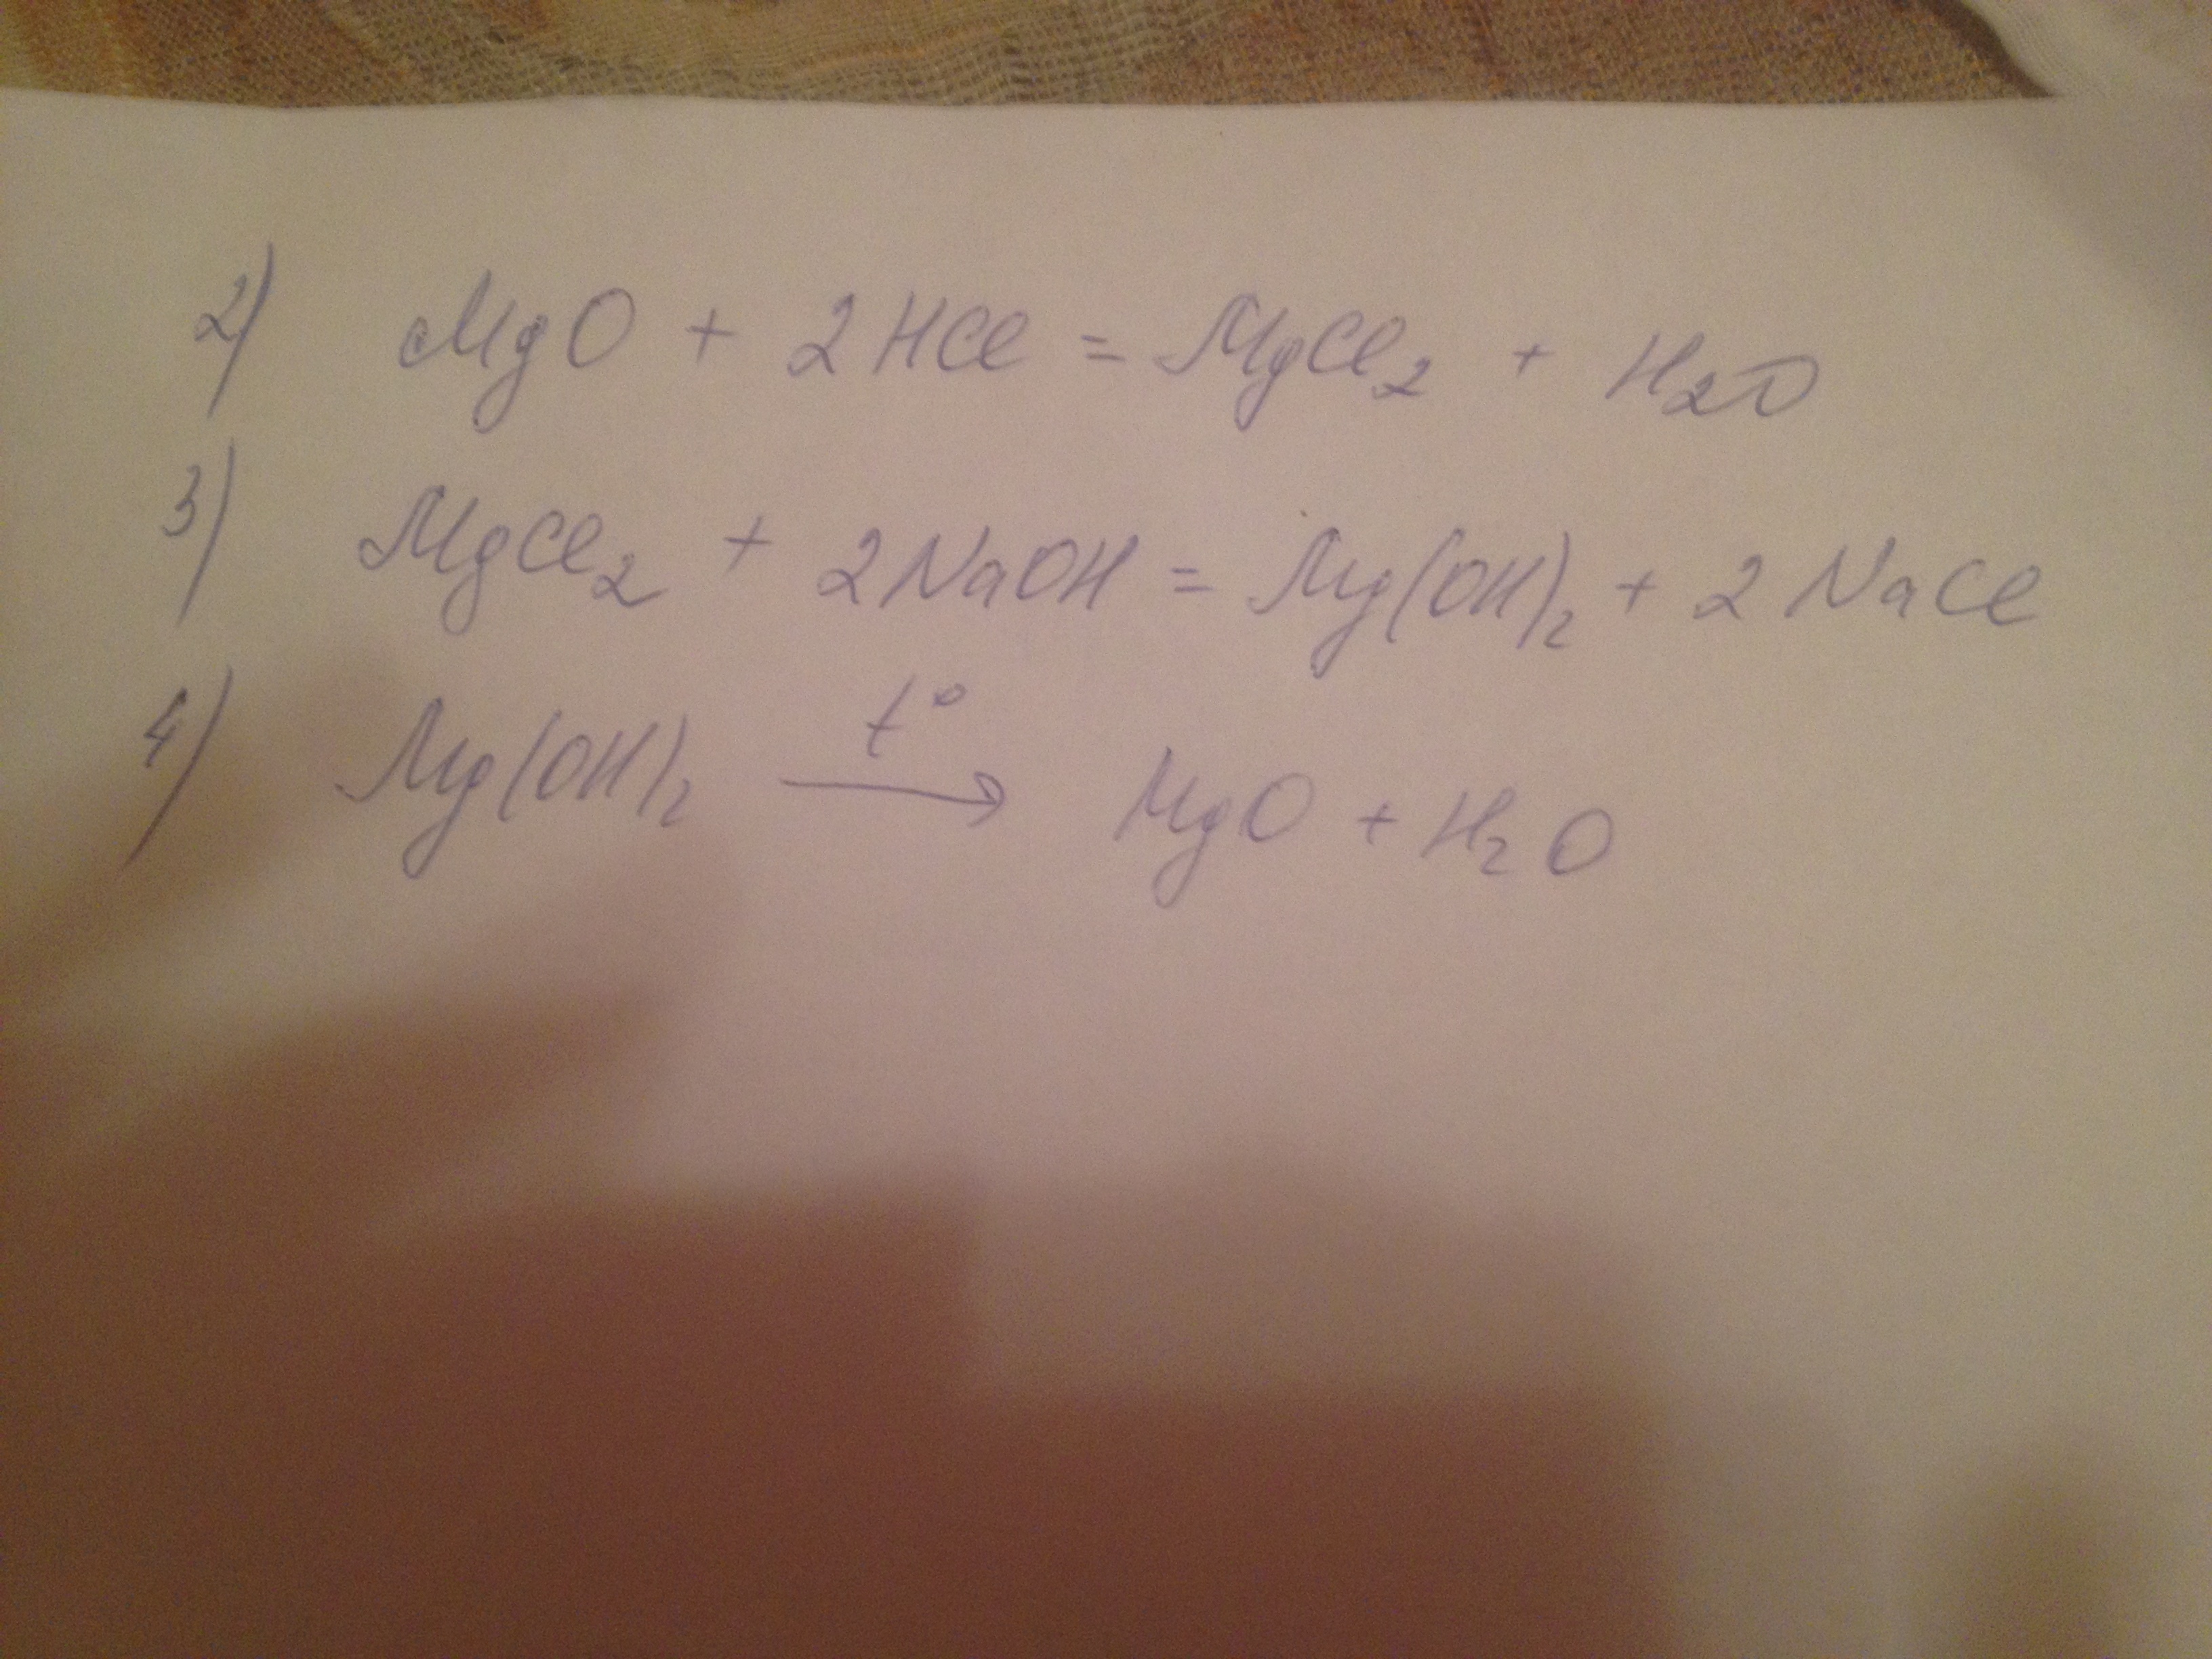 2) MgO + 2HCl = MgCl₂ + H₂O
3) MgCl₂ + 2NaOH = Mg(OH)₂ + 2NaCl
4) Mg(OH)₂ t° → MgO + H₂O